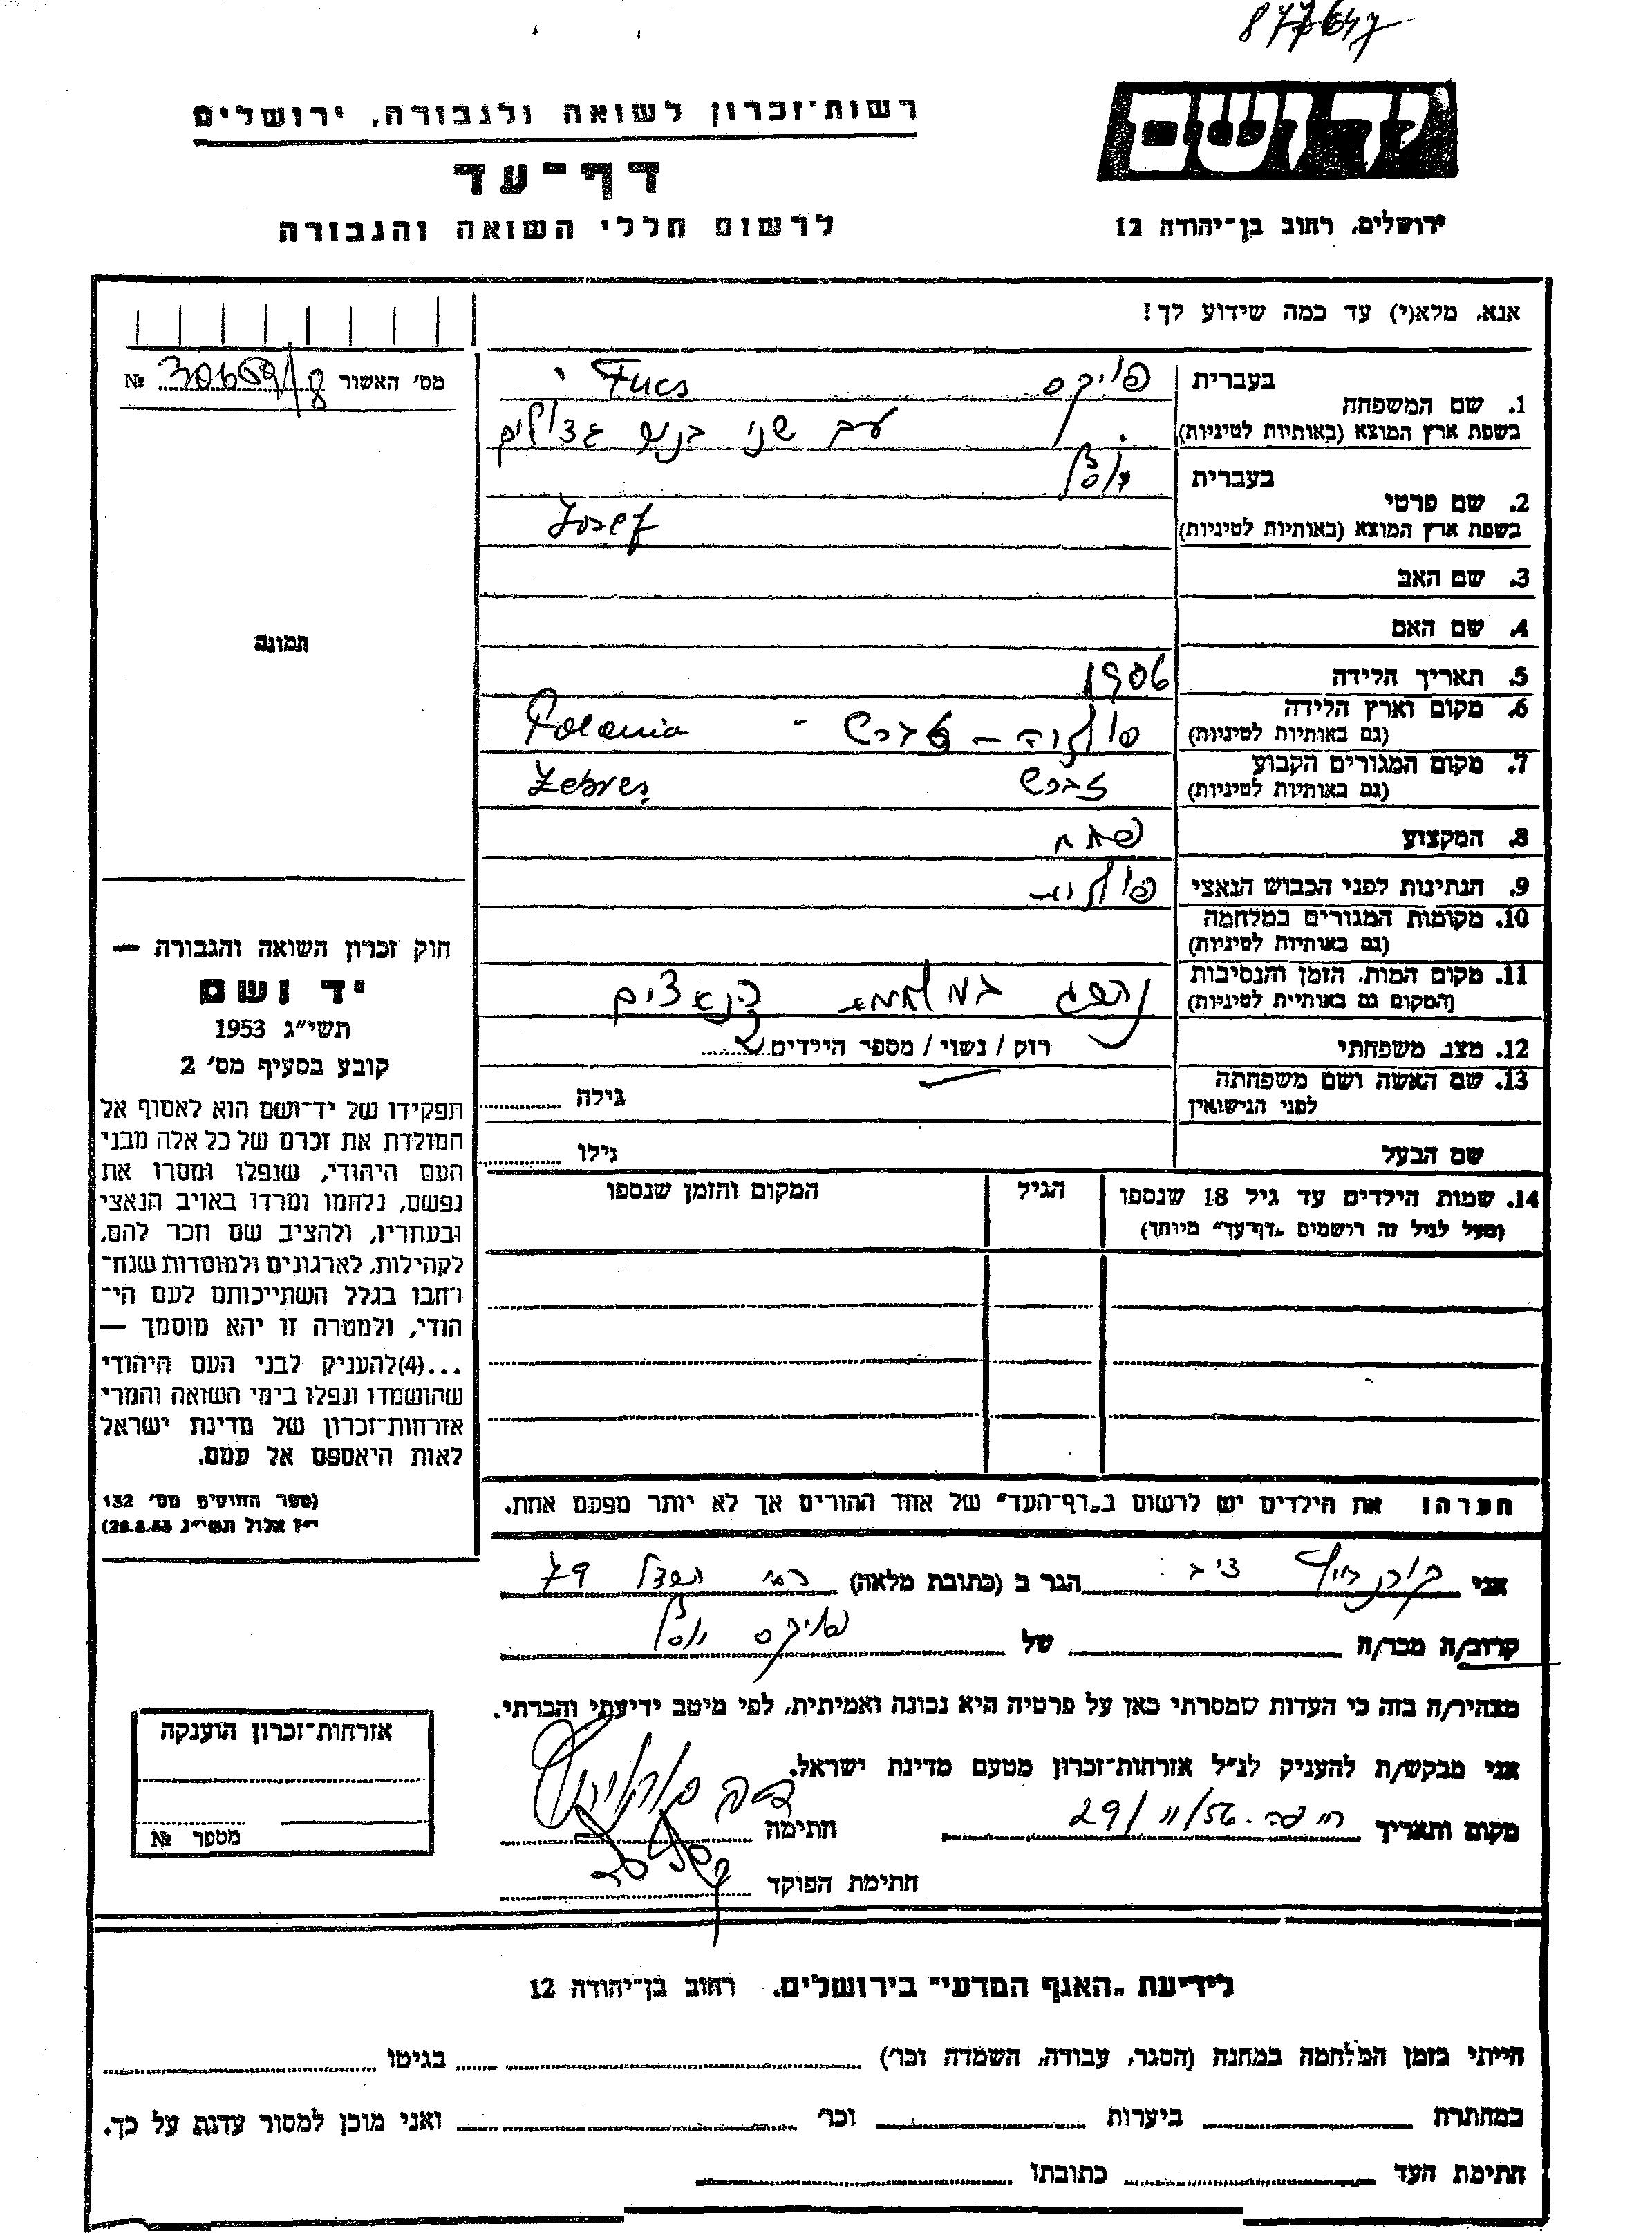 877647
יד ושם
רשות־זכרון לשואה ולגבורה, ירושלים
דף־עד
לרשום חללי השואה והגבורה
ירושלים, רחוב בן־יהודה 12
אנא, מלא(י) עד כמה שידוע לך!
מס׳ האשור № 30609/8
תמונה
1. שם המשפחה בעברית פויקס Fucs
בשפת ארץ המוצא (באותיות לטיניות) עם שני בנים גדולים
2. שם פרטי בעברית יוסף
בשפת ארץ המוצא (באותיות לטיניות) Josef
3. שם האב
4. שם האם
5. תאריך הלידה 1906
6. מקום וארץ הלידה
(גם באותיות לטיניות) פולניה – Polania
7. מקום המגורים הקבוע
(גם באותיות לטיניות) זברש Zebres
8. המקצוע
9. הנתינות לפני הכבוש הנאצי פולנית
10. מקומות המגורים במלחמה
(גם באותיות לטיניות)
11. מקום המות, הזמן והנסיבות
(המקום גם באותיות לטיניות) נהרג במלחמת הנאצים
12. מצב משפחתי רוק / נשוי / מספר הילדים 2
13. שם האשה ושם משפחתה
לפני הנישואין גילה
שם הבעל גילו
14. שמות הילדים עד גיל 18 שנספו הגיל המקום והזמן שנספו
(מעל לגיל זה רושמים „דף־עד״ מיוחד)
הערה: את הילדים יש לרשום ב„דף־העד״ של אחד ההורים אך לא יותר מפעם אחת.
חוק זכרון השואה והגבורה —
יד ושם
תשי״ג 1953
קובע בסעיף מס׳ 2
תפקידו של יד־ושם הוא לאסוף אל
המולדת את זכרם של כל אלה מבני
העם היהודי, שנפלו ומסרו את
נפשם, נלחמו ומרדו באויב הנאצי
ובעוזריו, ולהציב שם וזכר להם,
לקהילות, לארגונים ולמוסדות שנח־
רחבו בגלל השתייכותם לעם הי־
הודי, ולמטרה זו יהא מוסמך —
...(4)להעניק לבני העם היהודי
שהושמדו ונפלו בימי השואה והמרי
אזרחות־זכרון של מדינת ישראל
לאות היאספם אל עמם.
(ספר החוקים מס׳ 132
י״ז אלול תשי״ג 28.8.53)
אני הגר ב (כתובת מלאה)
קרוב/ה מכר/ה של פויקס יוסף
מצהיר/ה בזה כי העדות שמסרתי כאן על פרטיה היא נכונה ואמיתית, לפי מיטב ידיעתי והכרתי.
אני מבקש/ת להעניק לנ״ל אזרחות־זכרון מטעם מדינת ישראל.
מקום ותאריך חיפה. 29/11/56 חתימה
חתימת הפוקד
אזרחות־זכרון הוענקה
מספר №
לידיעת „האגף המדעי״ בירושלים, רחוב בן־יהודה 12
הייתי בזמן המלחמה במחנה (הסגר, עבודה, השמדה וכו׳) בגיטו
במחתרת ביערות וכו׳ ואני מוכן למסור עדות על כך.
חתימת העד כתובתו